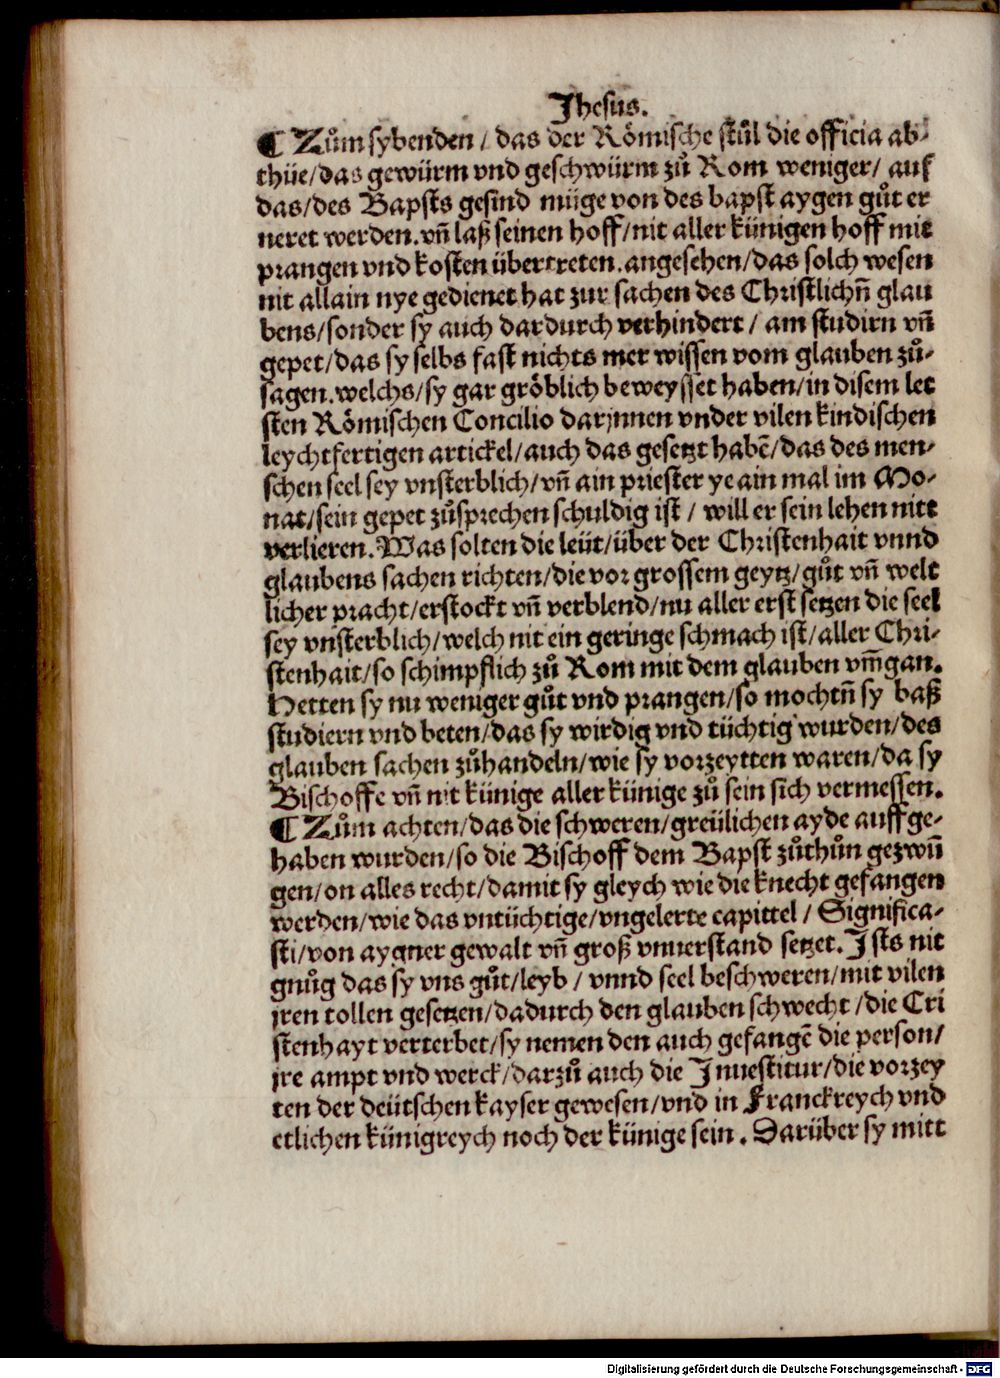 Jhesus.
¶ Zům sybenden / das der Römische stůl die officia ab-
thüe/das gewürm vnd geschwürm zů Rom weniger/ auf
das/des Bapsts gesind müge von des bapst aygen gůt er
neret werden.vñ laß seinen hoff/nit aller künigen hoff mit
prangen vnd kosten übertreten.angesehen/das solch wesen
nit allain nye gedienet hat zur sachen des Christlichñ glau
bens/sonder sy auch dardurch verhindert / am studirn vñ
gepet/das sy selbs fast nichts mer wissen vom glauben zů-
sagen.welchs/sy gar gröblich beweysset haben/in disem let
sten Römischen Concilio darjnnen vnder vilen kindischen
leychtfertigen artickel/auch das gesetzt habẽ/das des men-
schen seel sey vnsterblich/vñ ain priester ye ain mal im Mo-
nat/sein gepet zůsprechen schuldig ist / will er sein lehen nitt
verlieren.Was solten die leüt/über der Christenhait vnnd
glaubens sachen richten/die vor grossem geytz/gůt vñ welt
licher pracht/erstockt vñ verblend/nu aller erst setzen die seel
sey vnsterblich/welch nit ein geringe schmach ist/aller Chri-
stenhait/so schimpflich zů Rom mit dem glauben vm̃gan.
Hetten sy nu weniger gůt vnd prangen/so mochtñ sy baß
studiern vnd beten/das sy wirdig vnd tüchtig wurden/des
glauben sachen zůhandeln/wie sy vorzeytten waren/da sy
Bischoffe vñ nit künige aller künige zů sein sich vermessen.
¶ Zům achten/das die schweren/greülichen ayde auffge-
haben wurden/so die Bischoff dem Bapst zůthůn gezwuñ
gen/on alles recht/damit sy gleych wie die knecht gefangen
werden/wie das vntüchtige/vngelerte capittel / Significa-
sti/von aygner gewalt vñ groß vnuerstand setzet.Ists nit
gnůg das sy vns gůt/leyb / vnnd seel beschweren/mit vilen
jren tollen gesetzen/dadurch den glauben schwecht /die Cri
stenhayt verterbet/sy nemen den auch gefangẽ die person/
jre ampt vnd werck/darzů auch die Inuestitur/die vorzey
ten der deütschen kayser gewesen/vnd in Franckreych vnd
etlichen künigreych noch der künige sein . Darüber sy mitt
Digitalisierung gefördert durch die Deutsche Forschungsgemeinschaft - DFG